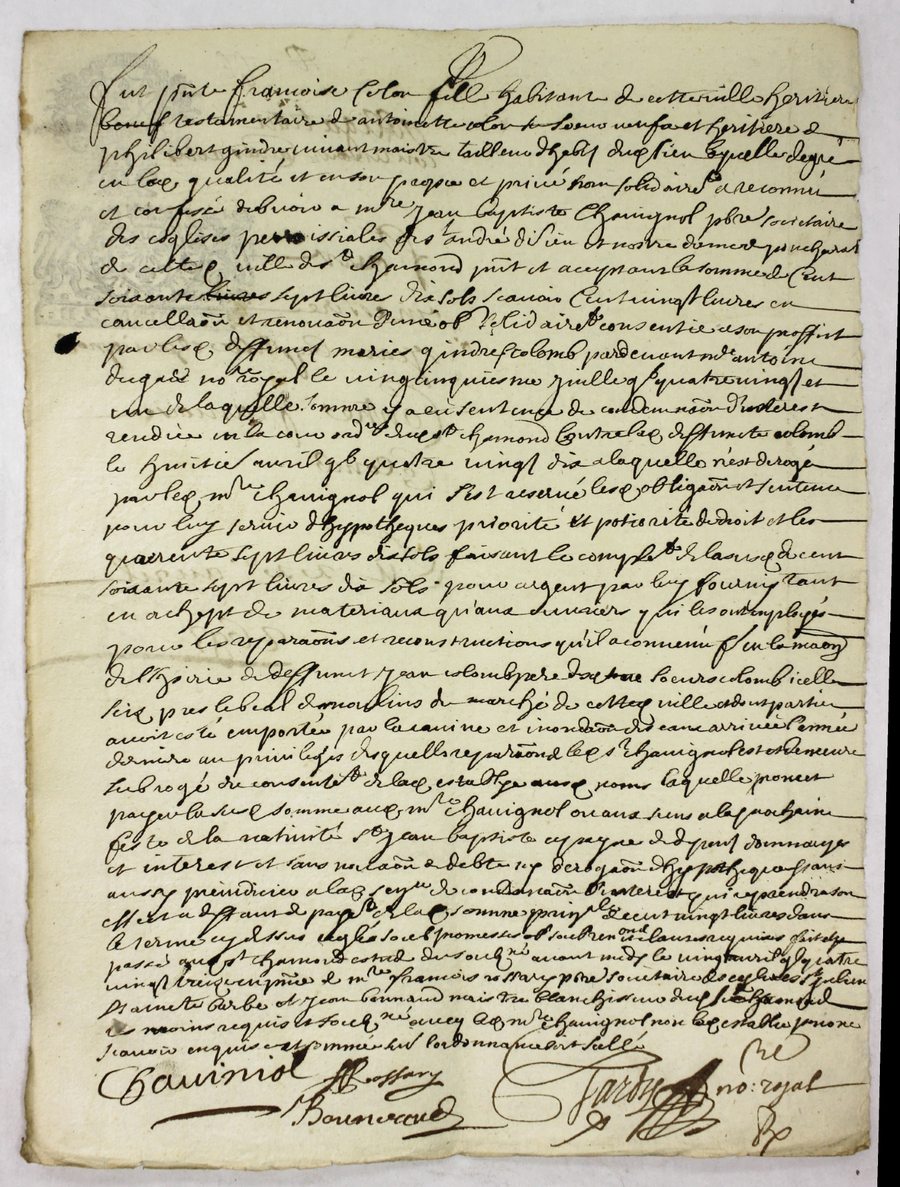 fut pnte francoise Colon fille habitante de cette ville heritiere
testamentaire de antoinette colon sa soeur veufve et heritiere de
philibert gindre vivant maistre tailleur dhabts dud lieu laquelle degré
en lad qualité et en son propre et privé nom solidairet a reconnu
et confessé debvoir a mre jean baptiste Chavignol pbre societaire
des esglises perroissiales de st andré dud lieu et nostre dame de
de cette ville de st chamond pnt et acceptant la somme de Cent
soixante livres sept livres dix sols scavoir Cent vingt livres en
cancellaon et renovaon dune ob solidairet consentie a son proffit
par lesd deffuncts maries gindre et colomb pardevant me antoine
no re royal le vingcinquiesme juillet gbc quatre vingt et
un de laquelle somme y a eu sentence de condemnaon dinterest
rendue en la cour ord re dud st chamond contre lad deffuncte colomb
le huitie avril gbc quatre vingt dix a laquelle n'est derogé
par led mre chavignol qui s'est reservé lesd obligaon et sentence
pour luy servir d'hypotheques priorité et potiorité de droit et les
quarente sept livres dix sols faisant le complet de la susd de cent
soixante sept livres dix sols pour argent par luy fournis tant
en achept de materiaux qu'aux ouvriers qui les ont employés
pour les reparaons et reconstructions qu'il a convenu f en la maon
de l'hoirie de deffunct jean colomb pere desd soeurs colomb icelle
size pres le beal des moulins du marché de cette ville et dont partie
avoit esté emporté par la ravine et inondaon des eaux arrivée l'année
derniere au privileges desquelles reparaons led sr chavignol est et demeure
subrogé du consentet de lad establye auxd noms laquelle promet
payer la susd somme aud mre chavignol ou aux siens a la prochaine
feste de la nativité st jean baptiste a peyne de depens dommages
et interest et sans novaon de debte ny derogaon dhypotheque sans
aussy prejudicier a lad sence de condemnaon dinterest qui reprendra son
effect a deffaut de payet de lad somme prinle de cent vingt livres dans
le terme cy dessus reglé soubs promesses ob soubs renons clauses requises fait et
passé aud st chamond estude du soubné avant midy le vingt avril gbc quatre
vingt treize en pnce de mre francois rossary pbre societaire des esglises st julien
et saincte barbe et jean bonnaud maistre blanchisseur dud st chamond
tesmoins requis et soubnés avec led mre chavignol non lad establye pour ne
scavoir enquise et sommée suit lordonnance sellé
Chaviniol
F Rossary
Bonneraud
Tardy
no: royal